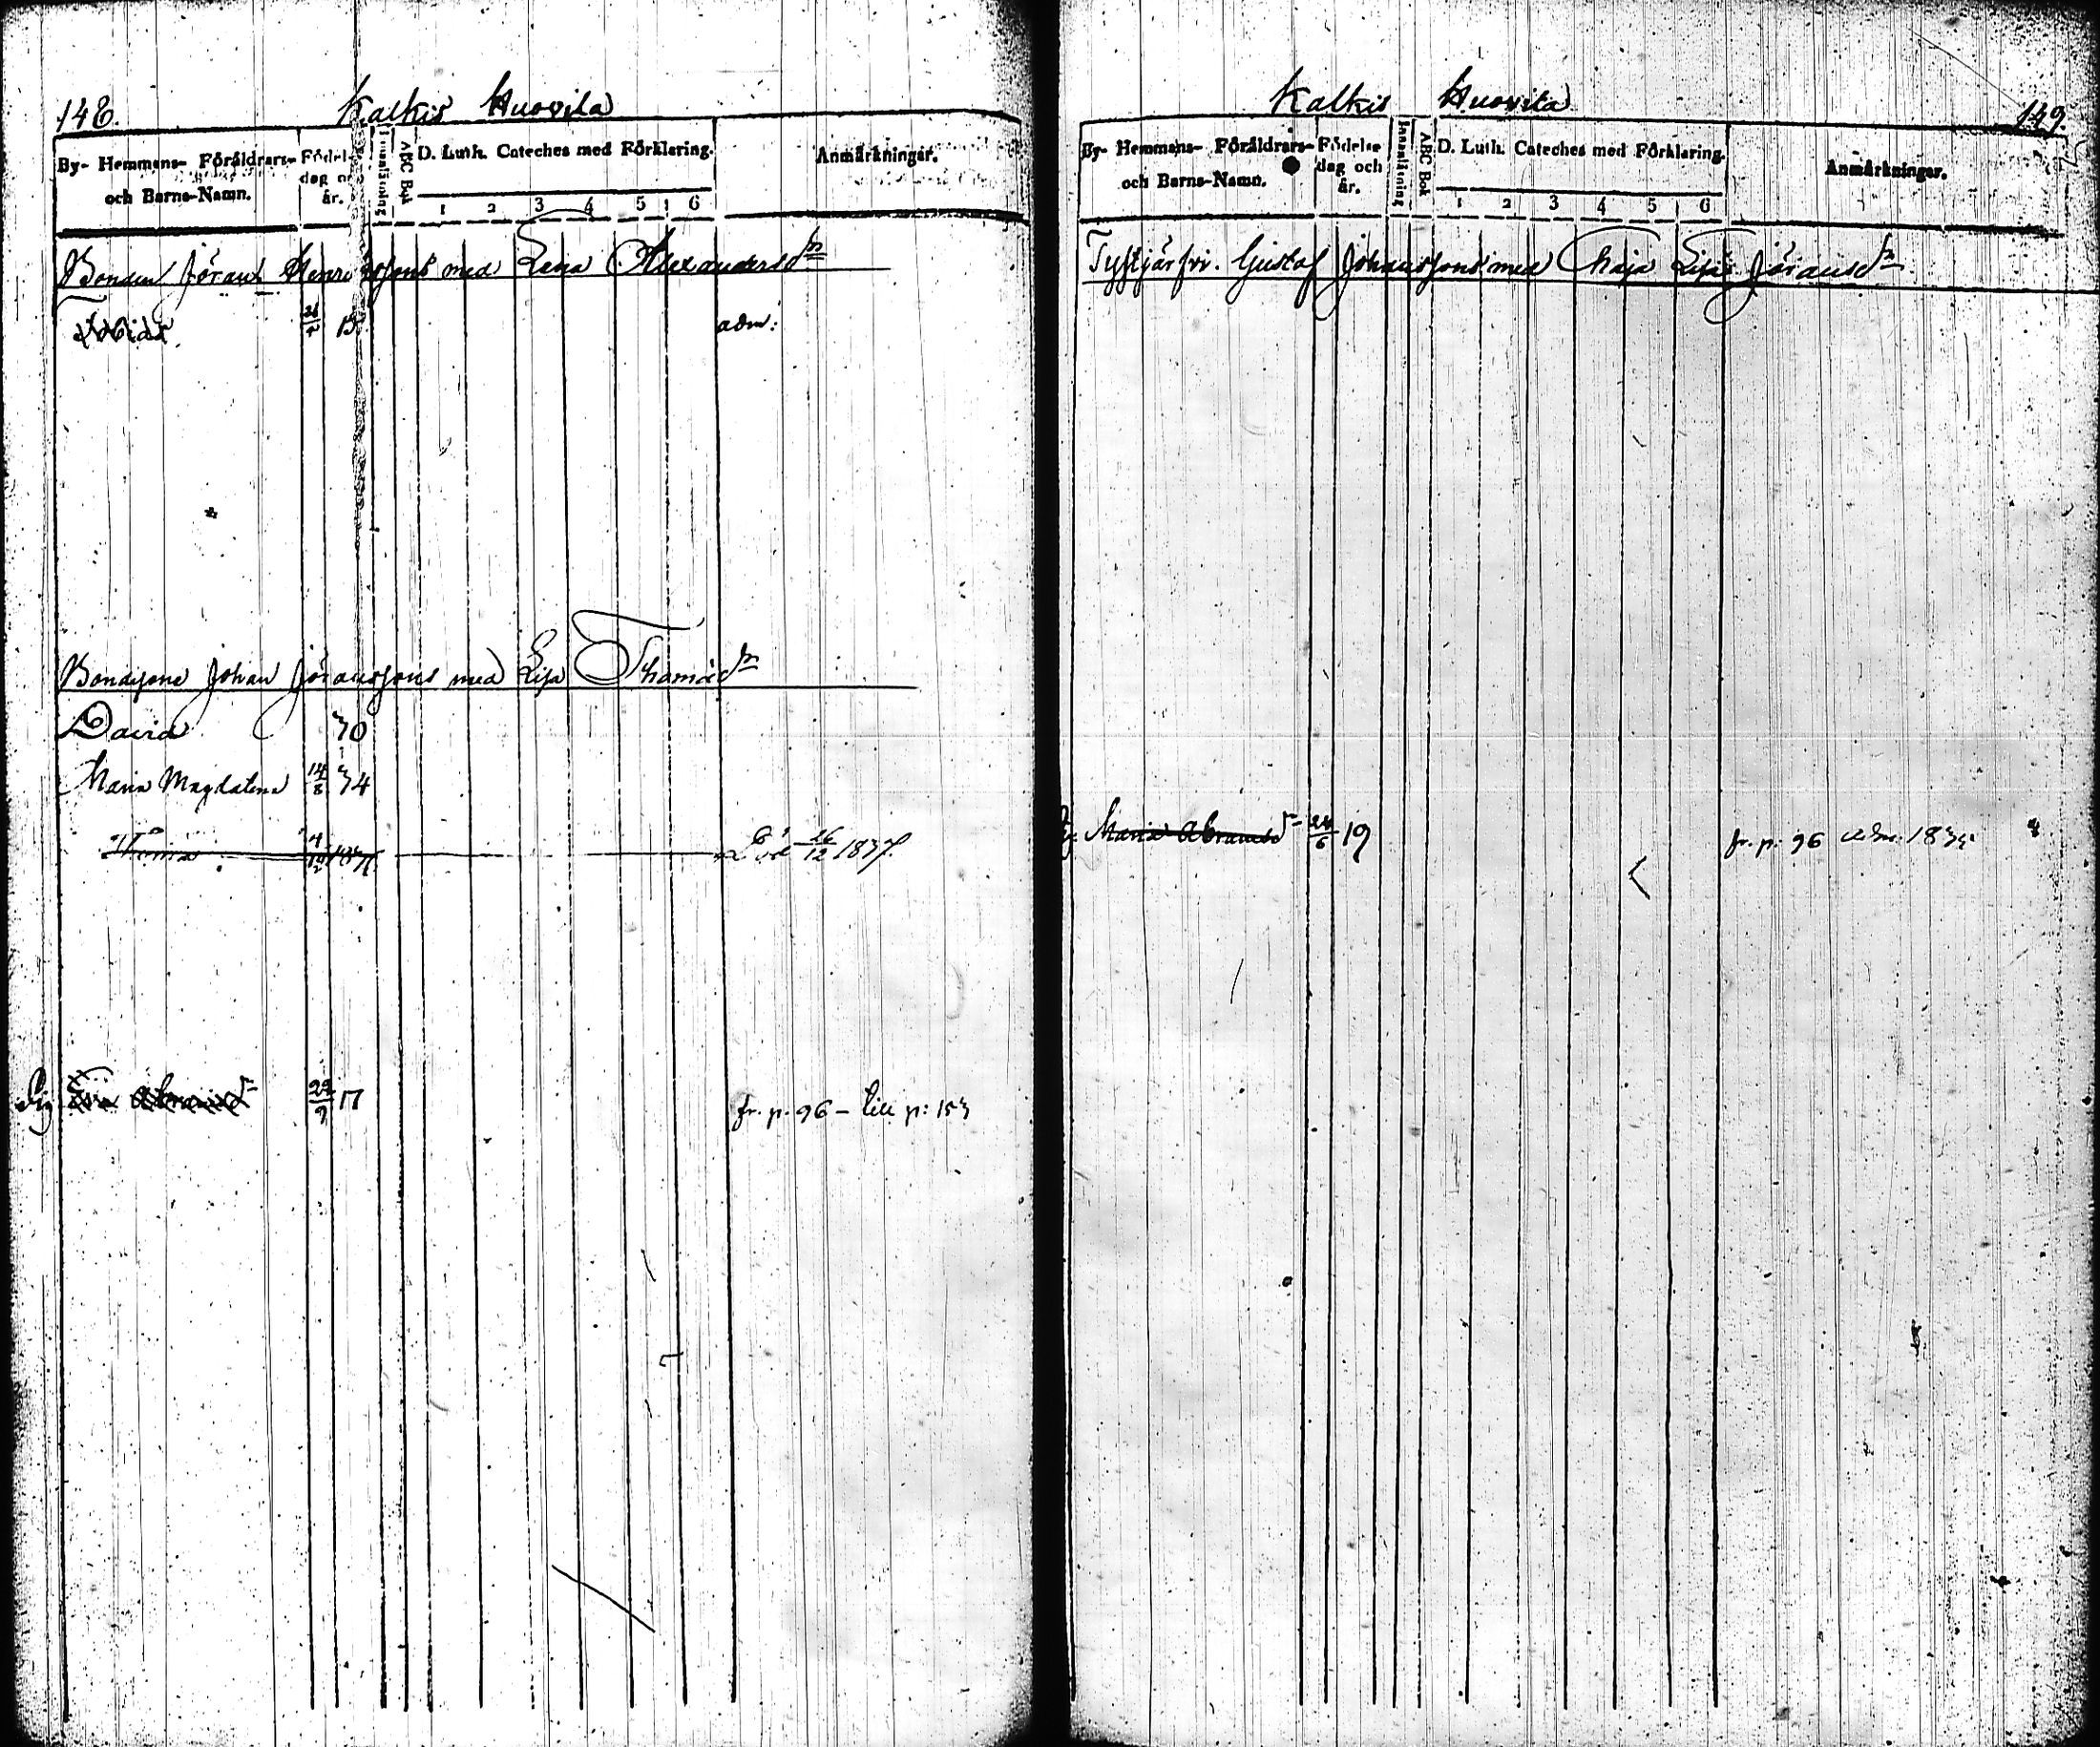 148.
Kalkis Huovila
By- Hemmans- Föräldrars-
och Barns-Namn.
Födel
dag o
år.
Innanläsning
ABC Bok
D. Luth. Cateches med Förklaring.
1 2 3 4 5 6
Anmärkningar.
Bonden Jörans Henrikssons med Lena Alexandersdr
26/4
adm:
Bondesone Johan Jöranssons med Lisa Thomasdr
David 30
Maria Magdalena 14/8 34
Död 26/12 1837.
Pig. Eva Abramsdr 22/9 17 fr. p. 96 – till p: 153
Kalkis Huovila
149.
By- Hemmans- Föräldrars-
och Barns-Namn.
Födelse
dag och
år.
Innanläsning
ABC Bok
D. Luth. Cateches med Förklaring.
1 2 3 4 5 6
Anmärkningar.
Gustaf Johanssons med Maja Lisa Jöransdr
Maria Abramsdr 24/6 19 fr. p. 96